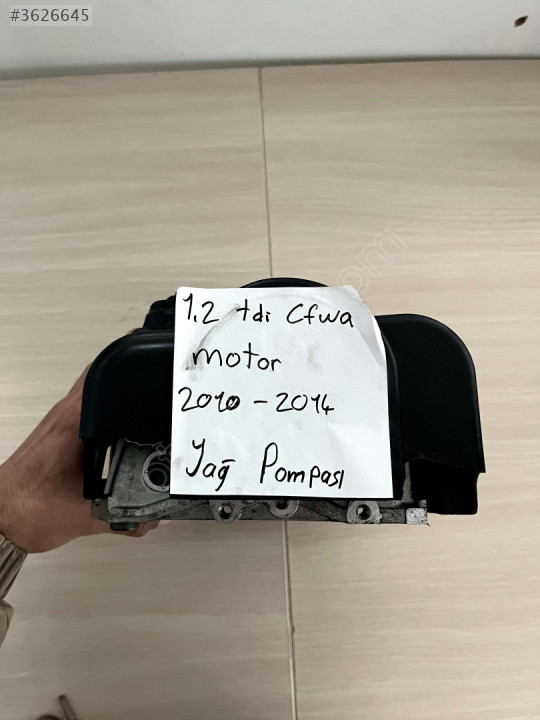 #3626645
1.2 tdi Cfwa
motor
2010 - 2014
Yağ Pompası